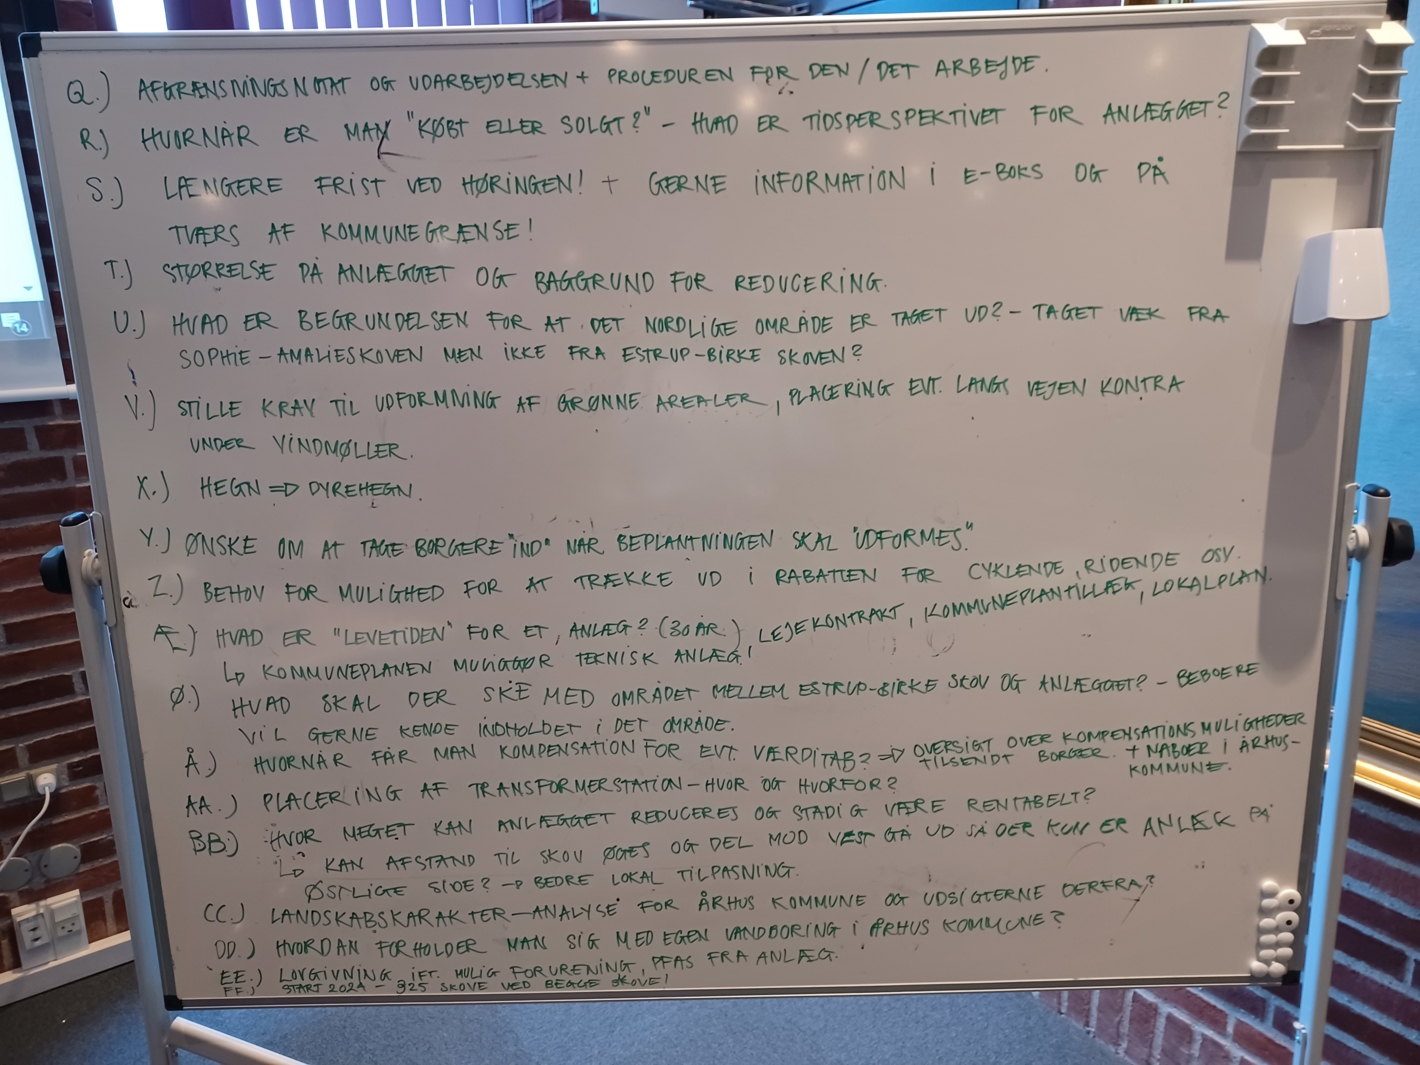 Q.) AFGRÆNSNINGSNOTAT OG UDARBEJDELSEN + PROCEDUREN FOR DEN / DET ARBEJDE.
R.) HVORNÅR ER MAN "KØBT ELLER SOLGT?" - HVAD ER TIDSPERSPEKTIVET FOR ANLÆGGET?
S.) LÆNGERE FRIST VED HØRINGEN! + GERNE INFORMATION I E-BOKS OG PÅ
TVÆRS AF KOMMUNEGRÆNSE!
T.) STØRRELSE PÅ ANLÆGGET OG BAGGRUND FOR REDUCERING.
U.) HVAD ER BEGRUNDELSEN FOR AT DET NORDLIGE OMRÅDE ER TAGET UD? - TAGET VÆK FRA
SOPHIE-AMALIESKOVEN MEN IKKE FRA ESTRUP-BIRKE SKOVEN?
V.) STILLE KRAV TIL UDFORMNING AF GRØNNE AREALER, PLACERING EVT. LANGS VEJEN KONTRA
UNDER VINDMØLLER.
X.) HEGN => DYREHEGN.
Y.) ØNSKE OM AT TAGE BORGERE "IND" NÅR BEPLANTNINGEN SKAL "UDFORMES."
Z.) BEHOV FOR MULIGHED FOR AT TRÆKKE UD I RABATTEN FOR CYKLENDE, RIDENDE OSV.
Æ.) HVAD ER "LEVETIDEN" FOR ET ANLÆG? (30 ÅR.) LEJEKONTRAKT, KOMMUNEPLANTILLÆG, LOKALPLAN.
↳ KOMMUNEPLANEN MULIGGØR TEKNISK ANLÆG!
Ø.) HVAD SKAL DER SKE MED OMRÅDET MELLEM ESTRUP-BIRKE SKOV OG ANLÆGGET? - BEBOERE
VIL GERNE KENDE INDHOLDET I DET OMRÅDE.
Å.) HVORNÅR FÅR MAN KOMPENSATION FOR EVT. VÆRDITAB? => OVERSIGT OVER KOMPENSATIONSMULIGHEDER
TILSENDT BORGER. + NABOER I ÅRHUS-
KOMMUNE.
AA.) PLACERING AF TRANSFORMERSTATION - HVOR OG HVORFOR?
BB.) HVOR MEGET KAN ANLÆGGET REDUCERES OG STADIG VÆRE RENTABELT?
↳ KAN AFSTAND TIL SKOV ØGES OG DEL MOD VEST GÅ UD SÅ DER KUN ER ANLÆG PÅ
ØSTLIGE SIDE? → BEDRE LOKAL TILPASNING.
CC.) LANDSKABSKARAKTER-ANALYSE FOR ÅRHUS KOMMUNE OG UDSIGTERNE DERFRA?
DD.) HVORDAN FORHOLDER MAN SIG MED EGEN VANDBORING I ÅRHUS KOMMUNE?
EE.) LOVGIVNING IFT. MULIG FORURENING, PFAS FRA ANLÆG.
FF.) START 2024 - §25 SKOVE VED BEGGE SKOVE!
14